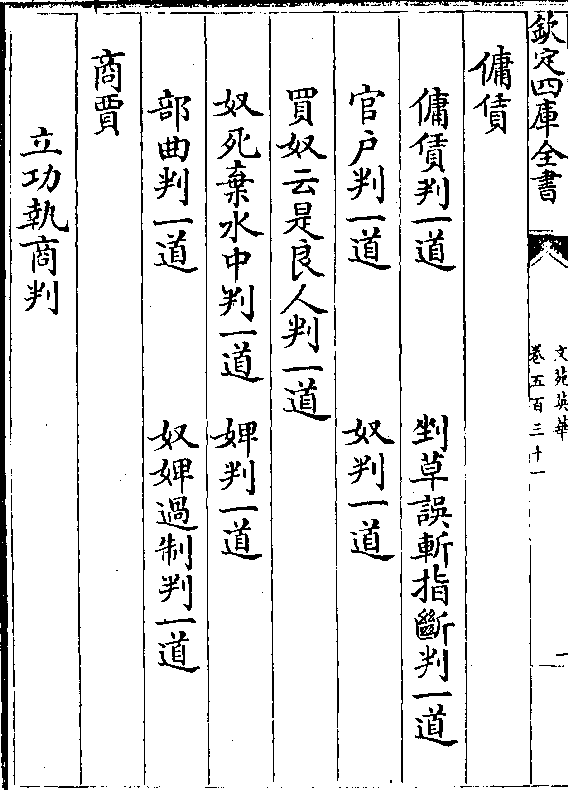 欽定四庫全書
文苑英華
卷五百三十一
一
傭賃
傭賃判一道 剉草誤斬指斷判一道
官户判一道 奴判一道
買奴云是良人判一道
奴死棄水中判一道 婢判一道
部曲判一道 奴婢過制判一道
商賈
立功執商判